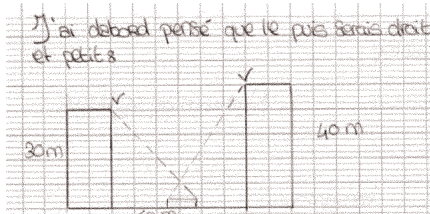 J'ai dabord pensé que le puis serais droit
et petit :
V V
30m 40m